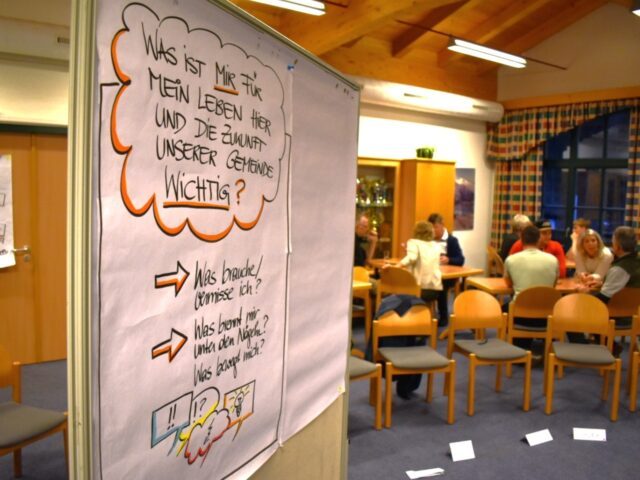 WAS IST MIR FÜR
MEIN LEBEN HIER
UND DIE ZUKUNFT
UNSERER GEMEINDE
WICHTIG?
Was brauche/
vermisse ich?
Was brennt mir
unter den Nägeln?
Was bewegt mich?
!!
!?